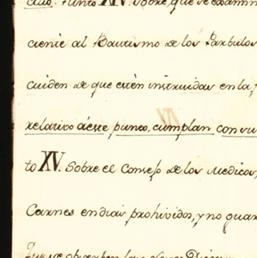 cias. Punto XIV. Sobre, que se examin
ciente al Bautismo de los Parbulos
cuiden de que estén instruidas en la, f
relativo á este punto, cumplan con su
to XV. Sobre el Consejo de los Medicos,
Carnes en dias prohividos, y no guar